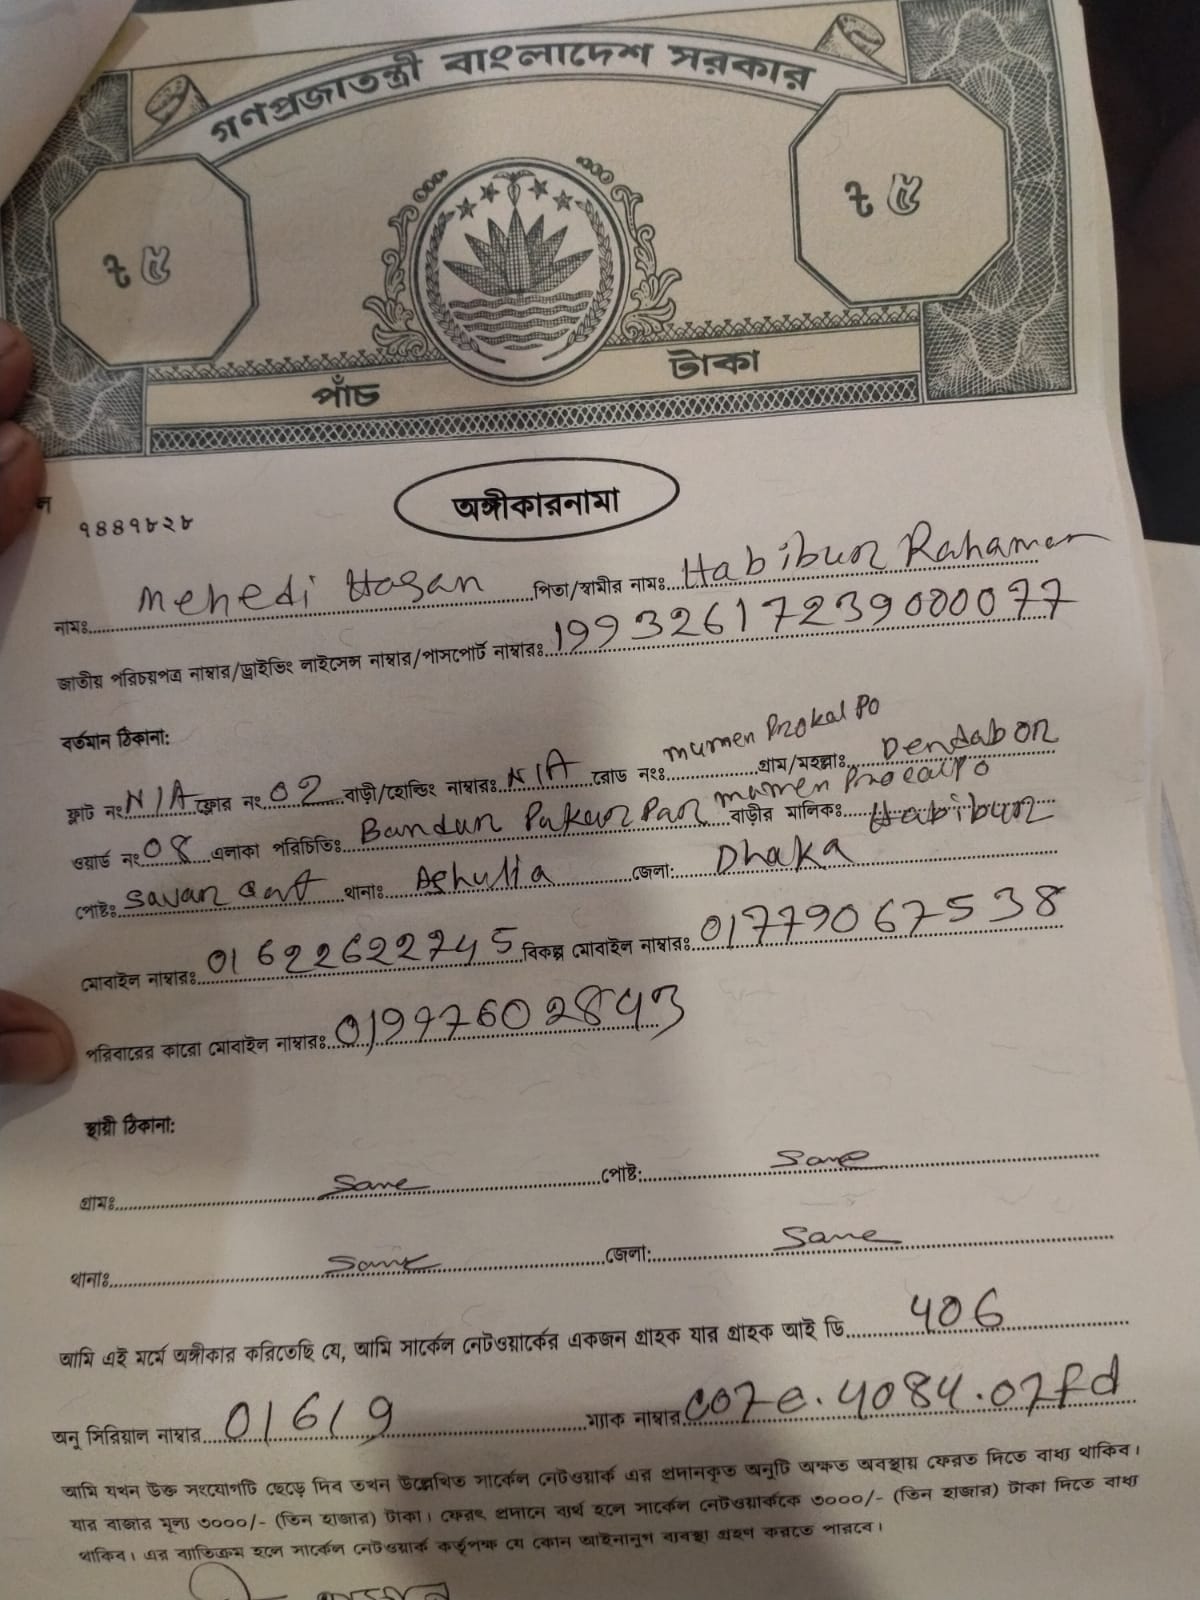 গণপ্রজাতন্ত্রী বাংলাদেশ সরকার
৳ ৫ ৳ ৫
পাঁচ টাকা
অঙ্গীকারনামা
ন ৭৪৪৭৮২৮
নামঃ Mehedi Hasan পিতা/স্বামীর নামঃ Habibur Rahaman
জাতীয় পরিচয়পত্র নাম্বার/ড্রাইভিং লাইসেন্স নাম্বার/পাসপোর্ট নাম্বারঃ 19932617239000077
বর্তমান ঠিকানা:
ফ্লাট নং N/A ফ্লোর নং 02 বাড়ী/হোল্ডিং নাম্বারঃ N/A রোড নংঃ Mumen Prokalpo গ্রাম/মহল্লাঃ Dendabor
ওয়ার্ড নং 08 এলাকা পরিচিতিঃ Bandur Pakur Par Mumen Procalpo বাড়ীর মালিকঃ Habibur
পোষ্টঃ Savar Cant থানাঃ Ashulia জেলা: Dhaka
মোবাইল নাম্বারঃ 01622622745 বিকল্প মোবাইল নাম্বারঃ 01779067538
পরিবারের কারো মোবাইল নাম্বারঃ 01997602843
স্থায়ী ঠিকানা:
গ্রামঃ Same পোষ্ট: Same
থানাঃ Same জেলা: Same
আমি এই মর্মে অঙ্গীকার করিতেছি যে, আমি সার্কেল নেটওয়ার্কের একজন গ্রাহক যার গ্রাহক আই ডি 406
অনু সিরিয়াল নাম্বার 01619 ম্যাক নাম্বার C07e.4084.07fd
আমি যখন উক্ত সংযোগটি ছেড়ে দিব তখন উল্লেখিত সার্কেল নেটওয়ার্ক এর প্রদানকৃত অনুটি অক্ষত অবস্থায় ফেরত দিতে বাধ্য থাকিব।
যার বাজার মূল্য ৩০০০/- (তিন হাজার) টাকা। ফেরৎ প্রদানে ব্যর্থ হলে সার্কেল নেটওয়ার্ককে ৩০০০/- (তিন হাজার) টাকা দিতে বাধ্য
থাকিব। এর ব্যতিক্রম হলে সার্কেল নেটওয়ার্ক কর্তৃপক্ষ যে কোন আইনানুগ ব্যবস্থা গ্রহণ করতে পারবে।